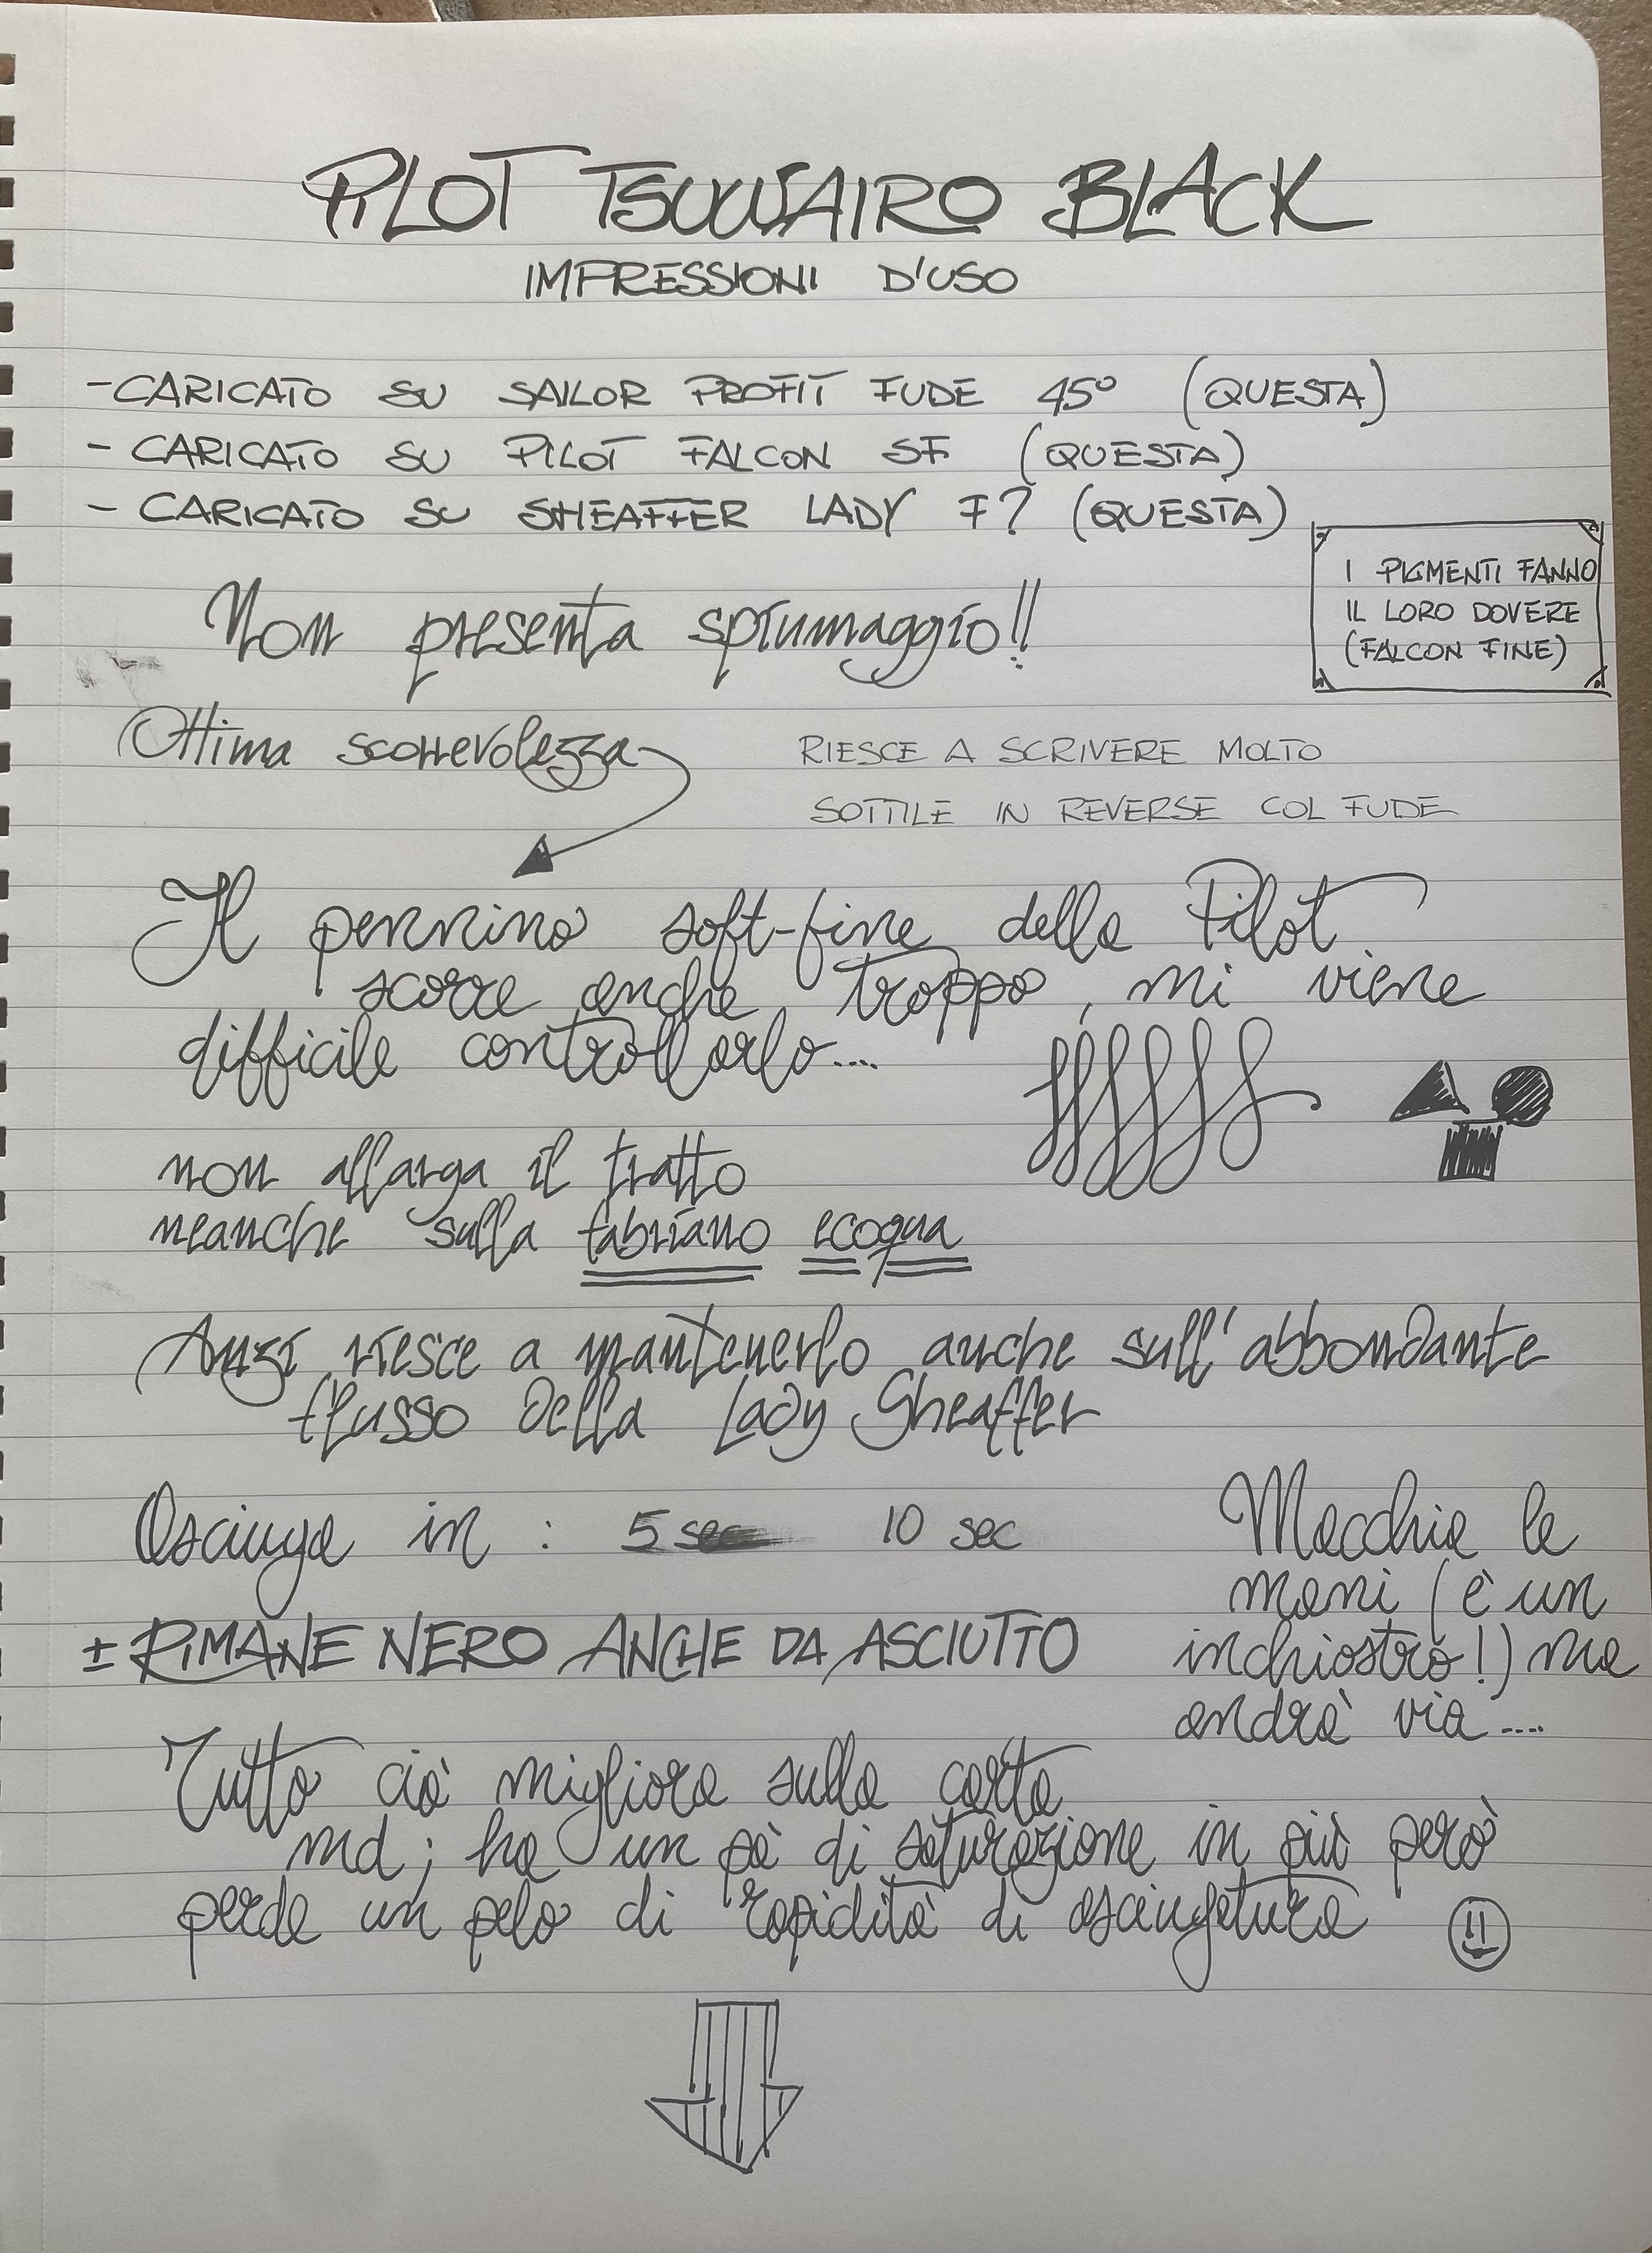 PILOT TSUWAIRO BLACK
IMPRESSIONI D'USO
- CARICATO SU SAILOR PROFIT FUDE 45° (QUESTA)
- CARICATO SU PILOT FALCON SF (QUESTA)
- CARICATO SU SHEAFFER LADY F? (QUESTA)
I PIGMENTI FANNO
IL LORO DOVERE
(FALCON FINE)
Non presenta spiumaggio!!
Ottima scorrevolezza
RIESCE A SCRIVERE MOLTO
SOTTILE IN REVERSE COL FUDE
Il pennino soft-fine della Pilot
scorre anche troppo, mi viene
difficile controllarlo....
non allarga il tratto
neanche sulla fabriano ecoqua
Anzi riesce a mantenerlo anche sull'abbondante
flusso della Lady Sheaffer
Asciuga in : 5 sec 10 sec
Macchia le
mani (è un
inchiostro!) ma
andrà via....
± RIMANE NERO ANCHE DA ASCIUTTO
Tutto ciò migliora sulla carta
md; ha un pò di saturazione in più però
perde un pelo di rapidità di asciugatura